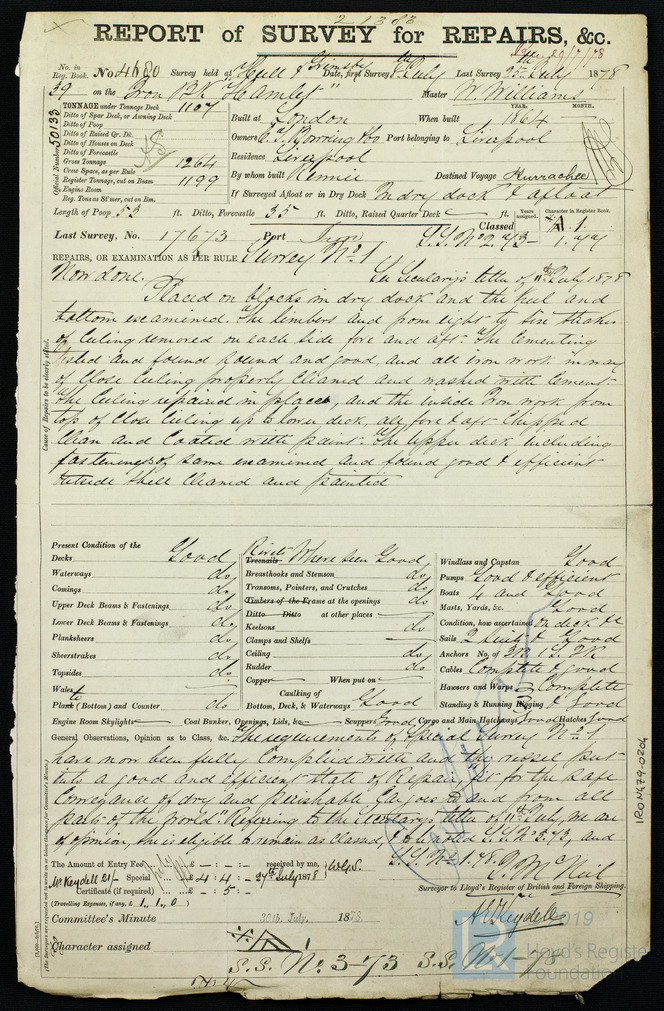 21383
REPORT of SURVEY for REPAIRS, &c.
No. in Reg. Book.
39
No. 4680 Survey held at Hull & Grimsby Date, first Survey 8th July Last Survey 25th July 1878
on the Iron Bk "Hamlet" Master W. Williams
Official Number 50133
TONNAGE under Tonnage Deck 1127
Ditto of Spar Deck, or Awning Deck
Ditto of Poop
Ditto of Raised Qr. Dk.
Ditto of Houses on Deck
Ditto of Forecastle
Gross Tonnage 1264
Crew Space, as per Rule
Register Tonnage, cut on Beam 1199
Engine Room
Reg. Tons as St'mer, cut on Bm.
Built at London When built YEAR. 1864 MONTH.
Owners C. J. Bowring & Co Port belonging to Liverpool
Residence Liverpool
By whom built Rennie Destined Voyage Kurrachee
If Surveyed Afloat or in Dry Dock In dry dock & afloat
Length of Poop 53 ft. Ditto, Forecastle 35 ft. Ditto, Raised Quarter Deck ft.
Years assigned. Character in Register Book.
Last Survey, No. 17673 Port Classed A.1.
REPAIRS, OR EXAMINATION AS PER RULE, Survey No. 1
Now done. See Secretary's letter of 11th July 1878
Placed on blocks in dry dock and the keel and
bottom examined. The limbers and from eight to six strakes
of Ceiling removed on each side fore and aft. The Cementing
tested and found sound and good, and all iron work in way
of Close Ceiling properly Cleaned and washed with Cement.
The Ceiling repaired in places, and the inside Iron work from
top of Close Ceiling up to lower deck, all fore & aft Chipped
Clean and Coated with paint. The upper deck including
fastenings of same examined and found good & efficient
Outside Shell Cleaned and painted
Cause of Repairs to be clearly stated.
Present Condition of the
Decks Good
Waterways do
Comings do
Upper Deck Beams & Fastenings do
Lower Deck Beams & Fastenings do
Planksheers do
Sheerstrakes do
Topsides do
Wales
Plank (Bottom) and Counter do
Engine Room Skylights
Rivets Treenails Where seen Good
Breasthooks and Stemson do
Transoms, Pointers, and Crutches do
Timbers of the Frame at the openings do
Ditto Ditto at other places
Keelsons do
Clamps and Shelfs
Ceiling do
Rudder do
Copper When put on
Caulking of
Bottom, Deck, & Waterways Good
Coal Bunker, Openings, Lids, &c. Scuppers Good Cargo and Main Hatchways Good Hatches Good
Windlass and Capstan Good
Pumps Good & efficient
Boats 4 and Good
Masts, Yards, &c. Good
Condition, how ascertained On deck &c
Sails 2 Suits & Good
Anchors No. of 3B 1S. 2K
Cables Complete & good
Hawsers and Warps Complete
Standing & Running Rigging Good
General Observations, Opinion as to Class, &c. The requirements of Special Survey No. 1
have now been fully Complied with and this vessel put
into a good and efficient state of Repair, fit for the safe
Conveyance of dry and perishable Cargoes to and from all
parts of the World. Referring to the Secretary's letter of 11th July, we are
of opinion, she is eligible to remain as Classed, & to be noted S.S. No. 3. 73, and
S.S. No. 1. 78.
The Amount of Entry Fee £ - : - : - received by me,
Mr Keydell 21/- Special £ 4 : 4 : - 27th July 1878
Certificate (if required) - : 5 : -
(Travelling Expenses, if any, £ 1,, 1,, 0)
C. McNeil
Surveyor to Lloyd's Register of British and Foreign Shipping.
A. Keydell
Committee's Minute 30th July. 1878
Character assigned
S.S. No. 3-73 S.S. No. 1-78
IRON479-0204
2019
Lloyd's Register
Foundation